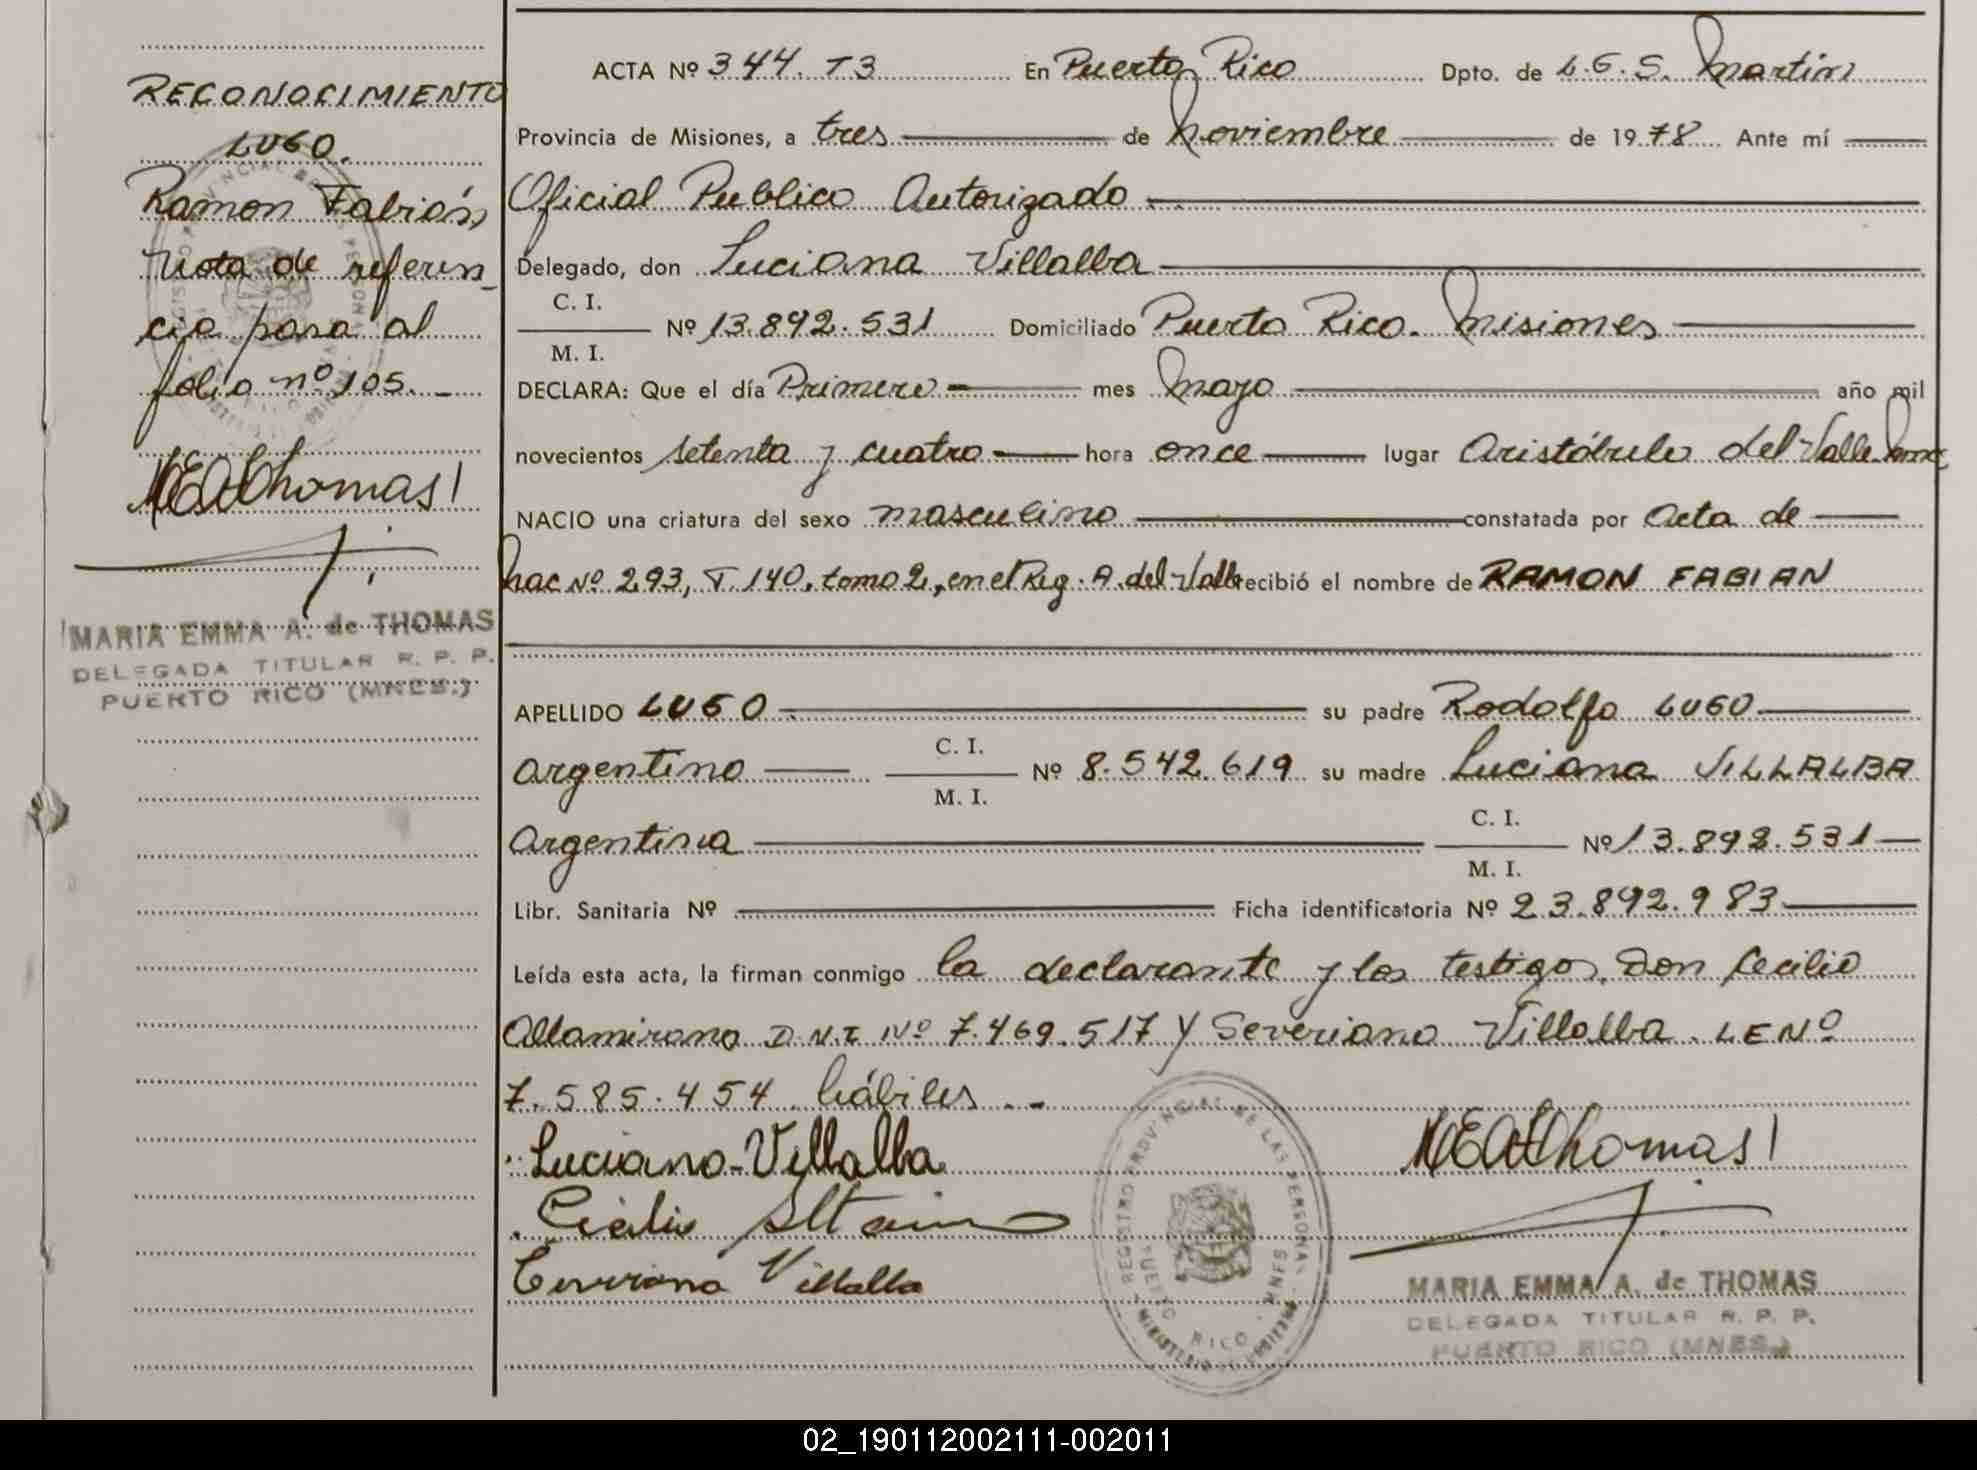 RECONOCIMIENTO
LUGO.
Ramon Fabián,
Nota de referen_
cia pasa al
folio nº 105. _
MEAThomas
MARIA EMMA A. de THOMAS
DELEGADA TITULAR R. P. P.
PUERTO RICO (MNES.)
ACTA Nº 344. T3 En Puerto Rico Dpto. de L.G.S. Martin
Provincia de Misiones, a tres de Noviembre de 1978 Ante mí
Oficial Publico Autorizado
Delegado, don Luciana Villalba
C. I.
M. I.
Nº 13.892.531 Domiciliado Puerto Rico. Misiones
DECLARA: Que el día Primero mes Mayo año mil
novecientos setenta y cuatro hora once lugar Aristóbulo del Valle
NACIO una criatura del sexo masculino constatada por Acta de
Nac Nº 293, F.140, tomo 2, en el Reg. A. del Valle recibió el nombre de RAMON FABIAN
APELLIDO LUGO su padre Rodolfo LUGO
argentino C. I. M. I. Nº 8.542.619 su madre Luciana VILLALBA
Argentina C. I. M. I. Nº 13.892.531
Libr. Sanitaria Nº Ficha identificatoria Nº 23.892.983
Leída esta acta, la firman conmigo la declarante y los testigos, Don Cecilio
Altamirano D.N.I. Nº 7.469.517 y Severiano Villalba. LE Nº
7.585.454 hábiles.-
Luciana-Villalba
MEAThomas
Villalba
REGISTRO PROVINCIAL DE LAS PERSONAS
PUERTO RICO - MNES
MARIA EMMA A. de THOMAS
DELEGADA TITULAR R. P. P.
PUERTO RICO (MNES.)
02_190112002111-002011